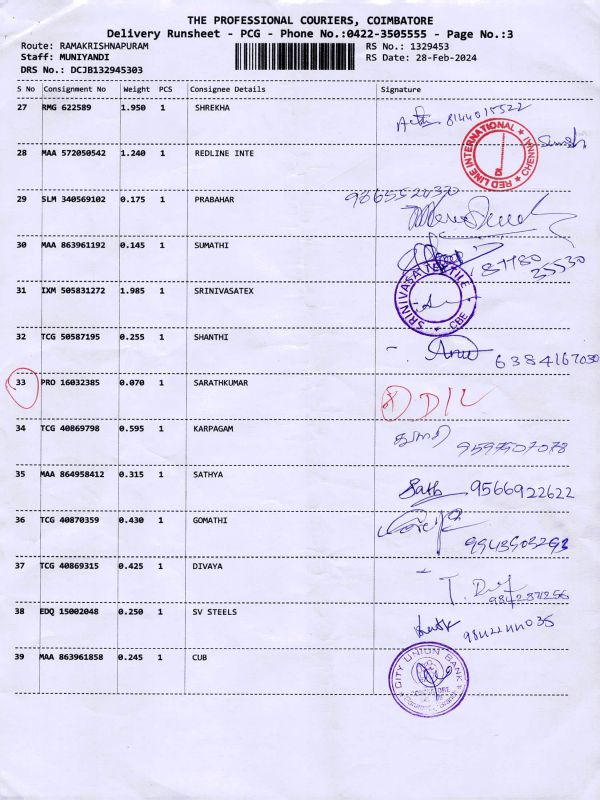 THE PROFESSIONAL COURIERS, COIMBATORE
Delivery Runsheet - PCG - Phone No.:0422-3505555 - Page No.:3
Route: RAMAKRISHNAPURAM RS No.: 1329453
Staff: MUNIYANDI RS Date: 28-Feb-2024
DRS No.: DCJB132945303
S No Consignment No Weight PCS Consignee Details Signature
27 RMG 622589 1.950 1 SHREKHA
8144015522
28 MAA 572050542 1.240 1 REDLINE INTE
RED LINE INTERNATIONAL ★ CHENNAI ★
29 SLM 340569102 0.175 1 PRABAHAR
30 MAA 863961192 0.145 1 SUMATHI
31 IXM 505831272 1.985 1 SRINIVASATEX
SRINIVASA TEXTILE ★ CBE ★
32 TCG 50587195 0.255 1 SHANTHI
6384167030
33 PRO 16032385 0.070 1 SARATHKUMAR
D/L
34 TCG 40869798 0.595 1 KARPAGAM
35 MAA 864958412 0.315 1 SATHYA
Sath 9566922622
36 TCG 40870359 0.430 1 GOMATHI
37 TCG 40869315 0.425 1 DIVAYA
38 EDQ 15002048 0.250 1 SV STEELS
39 MAA 863961858 0.245 1 CUB
CITY UNION BANK